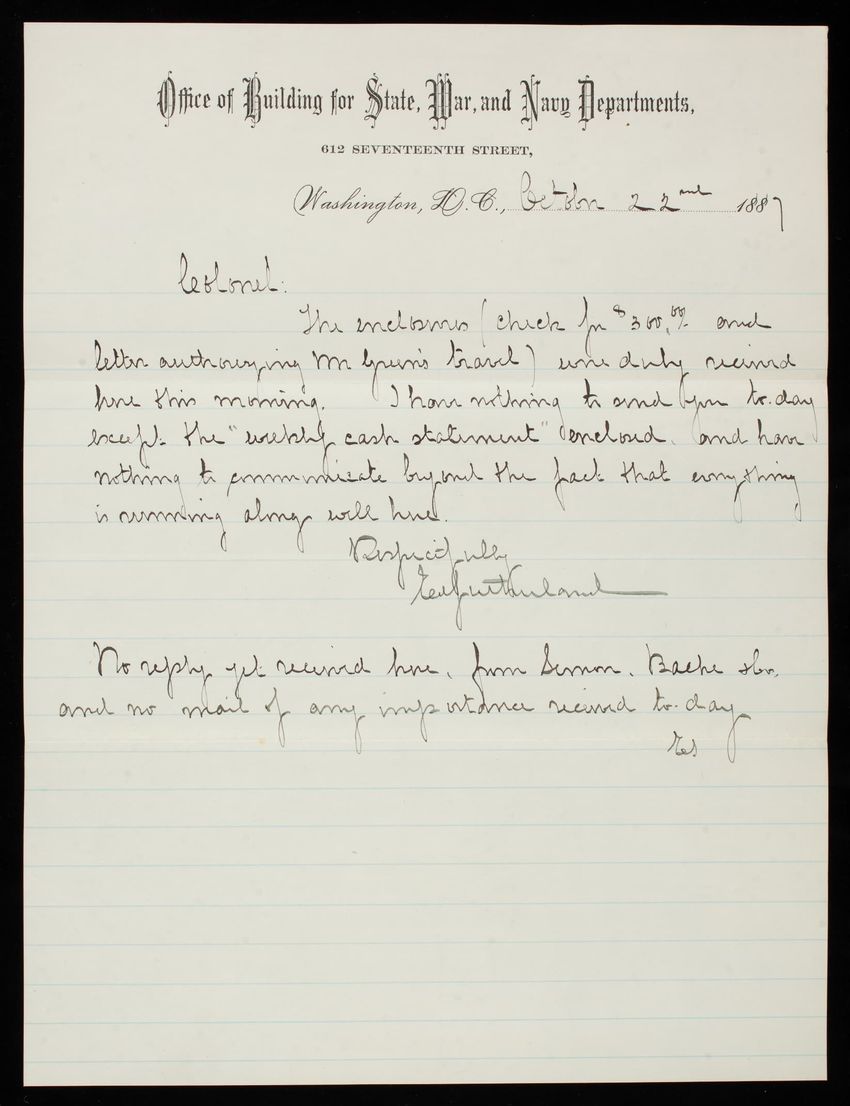 Office of Building for State, War, and Navy Departments,
612 SEVENTEENTH STREET,
Washington, D.C., October 22nd 1887
Colonel:
The enclosures (check for $300.00/ and
letter authorizing Mr Green's travel) were duly received
here this morning. I have nothing to send you to-day
except the "weekly cash statement" enclosed. and have
nothing to communicate beyond the fact that everything
is running along well here.
Respectfully
Sutherland
No reply yet received here, from Simon. Bache &Co.
and no mail of any importance received to-day